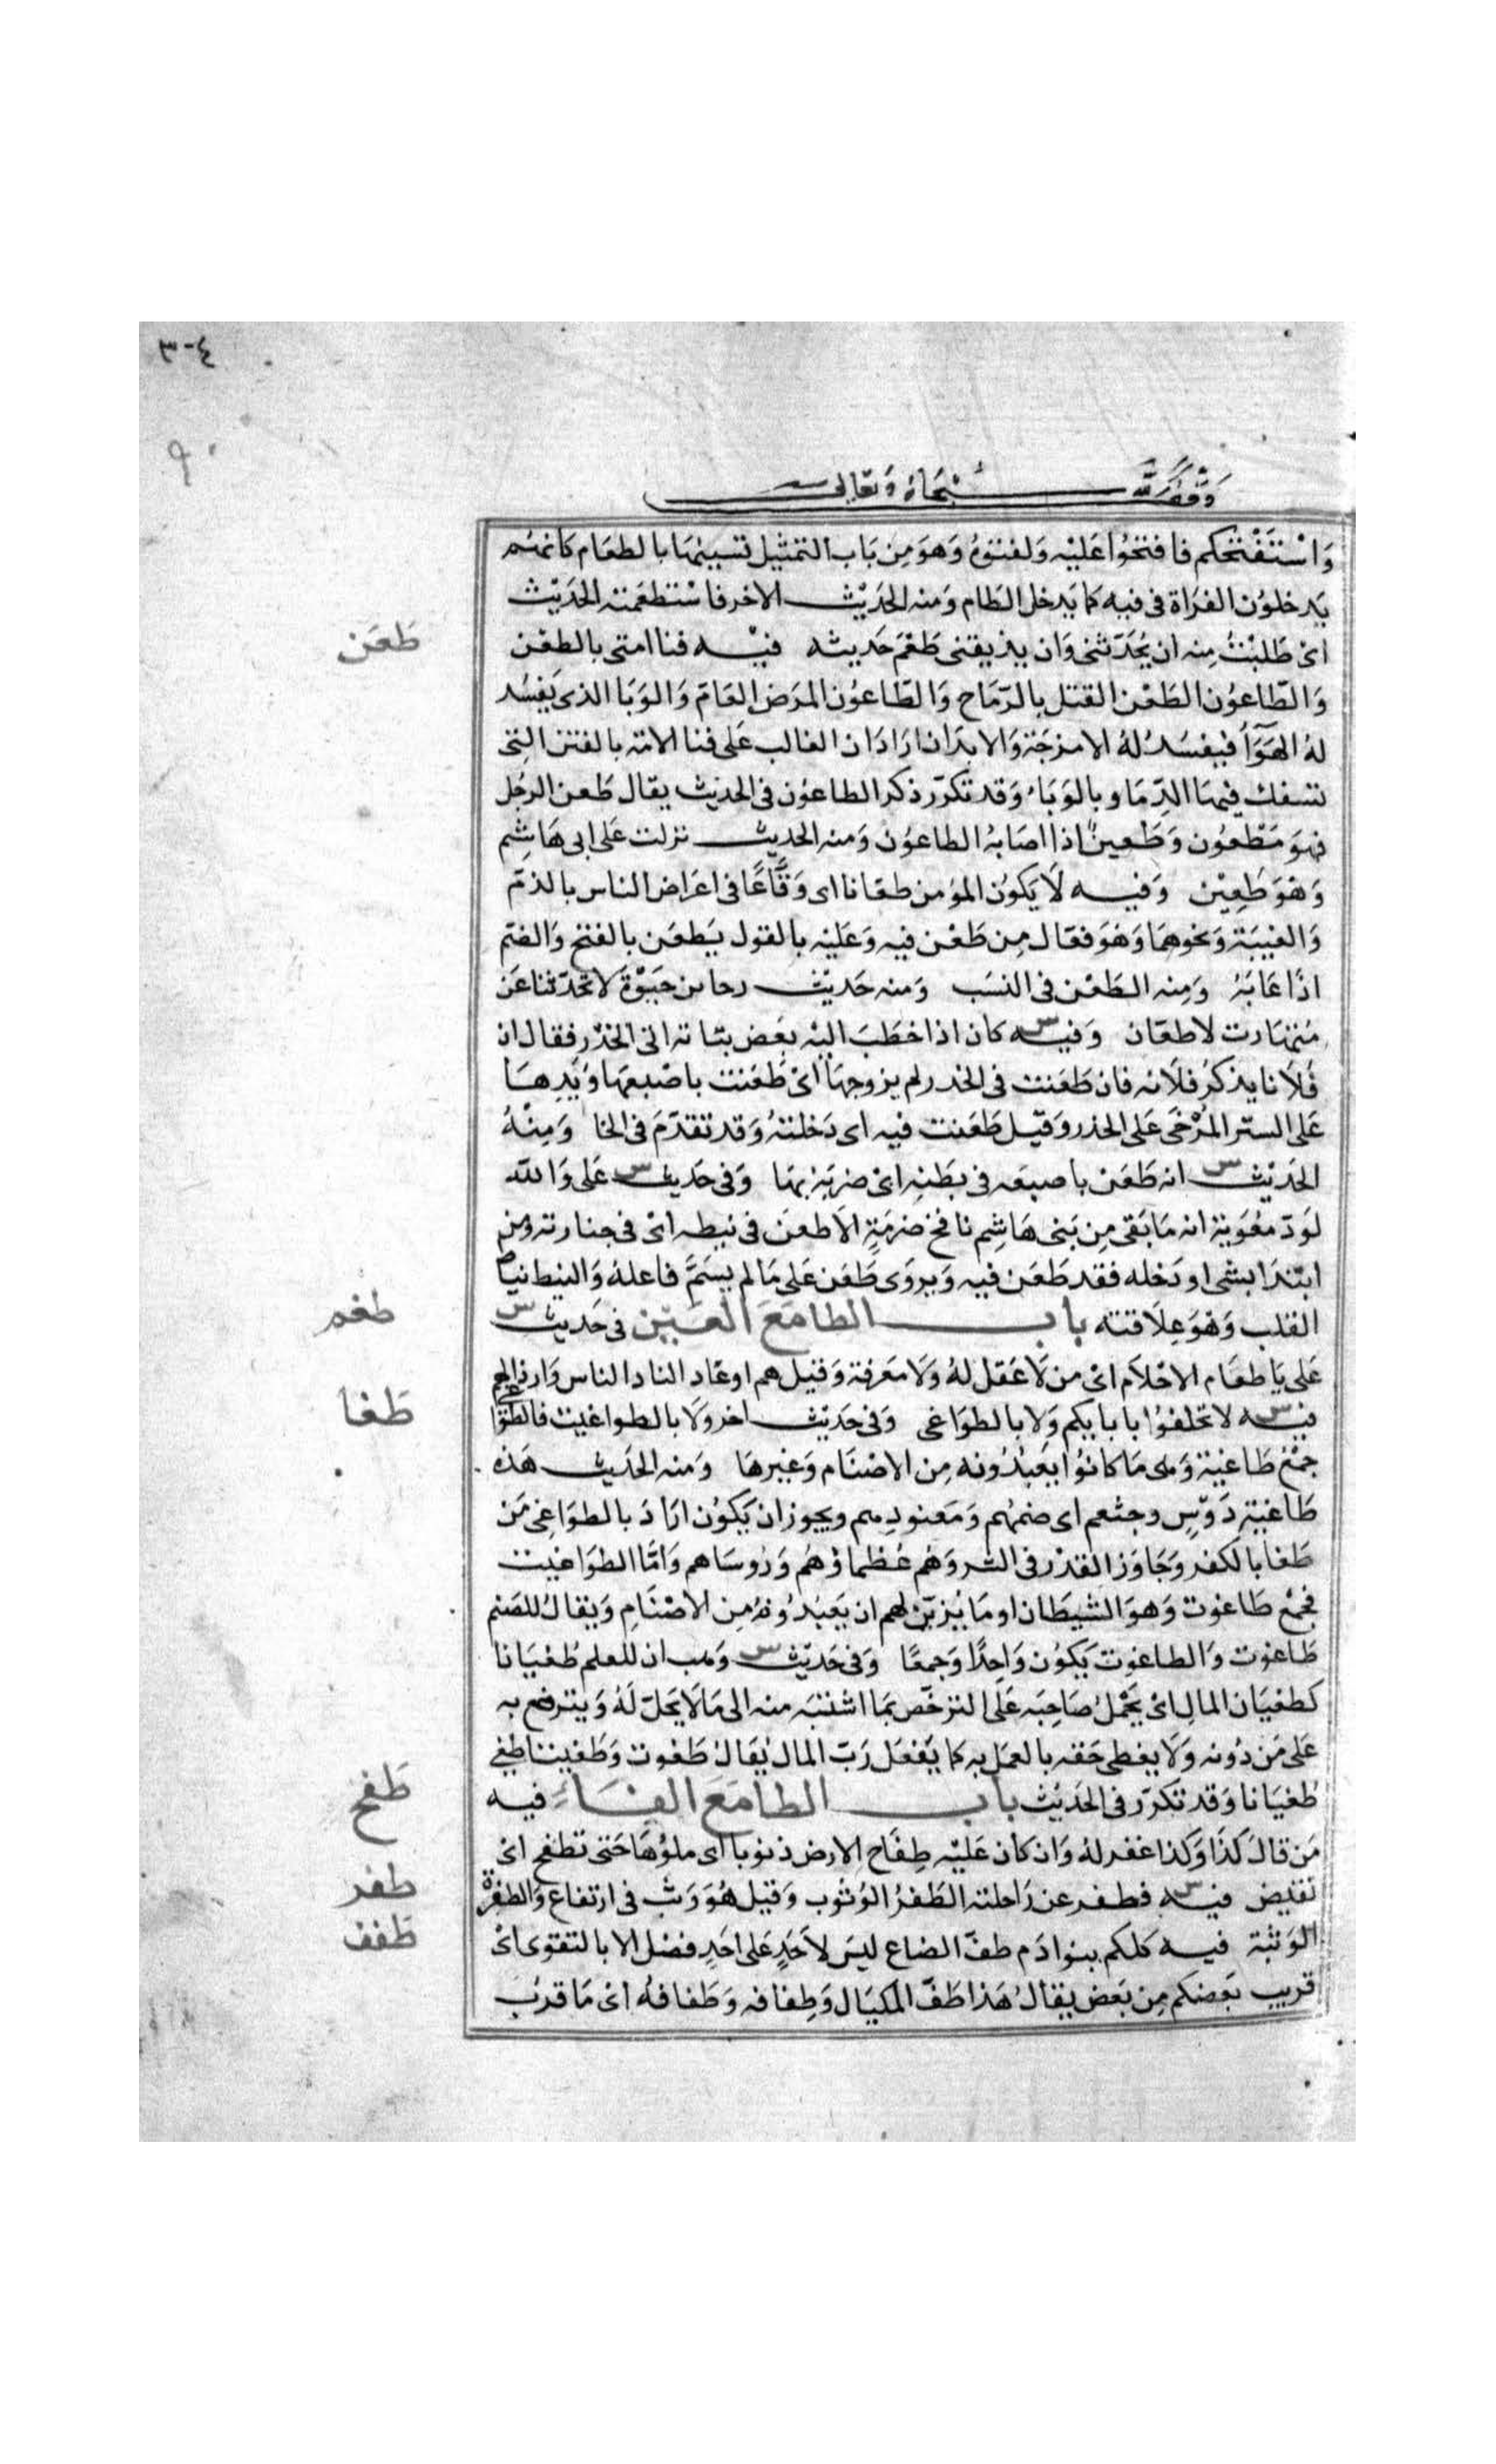 ٣٠٤
وقف لله سبحانه وتعالى
وَاسْتَفْتحكم فافتحُوا عَليْه وَلقنوهُ وَهوَ مِن بَاب التمثيل تشبيهًا بالطعَام كانهُم
يدخلوُن القرَاة فى فيه كما يَدخل الطَام وَمنه الحَديْث الاخر فاسْتطعَمته الحَديْث
اىْ طَلبْتُ مِنه ان يُحَدّثنى وَان يذيقنى طَعْمَ حَديثه فيْه فنا امتى بالطعْن
طَعَن
وَالطّاعوُن الطَعْن القتل بالرّمَاح وَالطّاعوُن المرَض العَامّ وَالوَبَا الذى يَفسُد
لهُ الهَوَآ فيفسَدُ لهُ الامزجَة وَالابدَان ارَادَ ان الغالب عَلى فنا الامّة بالفتن التِى
تسفك فيهَا الدِّمَا وبالوَبَاء وَقد تكرّر ذكر الطاعوُن فى الحَديْث يقال طَعن الرجُل
فهوَ مَطْعوُن وَطَعينٌ اذا اصَابهُ الطاعوُن وَمنه الحديث نزلت عَلى ابى هَاشِم
وَهوَ طَعِيْن وَفيه لاَ يَكوُن المؤمن طعّانا اى وَقَّاعًا فى اعرَاض الناس بالذمّ
وَالغيبَة وَنحوهمَا وَهوَ فعّال مِن طَعْن فيه وَعَليْه بالقول يَطعَن بالفتح وَالضّم
اذَا عَابَهُ وَمِنه الطَعْن فى النسَب وَمنه حَديْث رحا بن حَيوْة لا تحَدّثنا عَن
مُتهَارت لا طعّان وَفيه س كان اذا خَطَبَ اليْه بَعض بَناته اتى الخدْر فقال ان
فُلاَنا يذكرُ فلاَنه فان طَعَنت فى الخدر لم يزوجهَا اىْ طَعَنت باصْبعهَا وَيَدِهَا
عَلى السّتر المُرْخَى عَلى الخدر وَقيْل طَعَنت فيه اى دَخلتهُ وَقد تقدّمَ فى الخا وَمِنْهُ
الحَديْث س انه طَعَنْ باصبعه فى بَطنِه اىْ ضرَبَه بهَا وَفى حَديث س عَلى وَاللّه
لوَدّ مُعَويَة انه مَا بَقى مِن بَنى هَاشِم نافخ ضرمَةٍ الاّ طعنَ فى نيطه اىْ فى جنازته ومن
ابتدَا بشى او دَخله فقد طَعَن فيه وَيروَى طَعَن عَلى مَا لم يسَمَّ فاعلهُ وَالنيط نياط
القلب وَهوَ عِلاَقته بابُ الطا مَعَ الغَيْن فى حَديث س
طغم
عَلى يَا طغَام الاحْلاَم اىْ من لاَ عَقل لهُ وَلاَ معرفة وَقيل هم اوغَاد الناد الناس وَارذالهم
فيه س لا تحلفوُا بابايكم وَلا بالطوَاغى وَفى حَديْث اخر وَلا بالطواغيت فالطوَاغى
طَغا
جمْع طَاغيَة وَهى مَا كانوُا يَعبُدُونه مِن الاصْنَام وَغيرهَا وَمنه الحَديث هَذه
طَاغيَة دَوْسٍ وخثعم اى صَنمُهم وَمَعبودهم ويجوز ان يَكوُن ارَادَ بالطوَاغِى مَن
طَغا بالكفر وَجَاوَز القدْر فى الشروَهُم عُظماؤهُم وَرُوسَاهم وَامَّا الطوَاغيت
فجمْع طَاغوت وَهوَ الشيطَان او مَا يُزيّن لهم ان يَعبُدُوهُ مِن الاصْنَامِ وَيقالُ للصَنم
طَاغوت وَالطاغوت يَكوُن وَاحِدًا وَجمعًا وَفى حَديْث س وَهب ان للعلم طُغيَانا
كطغيَان المال اىْ يَحْملُ صَاحِبَه عَلى الترخّص بمَا اشتبَه منه الى مَا لاَ يَحلّ لَهُ وَيترفع به
عَلى مَن دُونه وَلاَ يعطى حَقه بالعمَل به كما يَفعَل رَبّ المال يُقال طَغوت وَطَغيت اطغى
طُغيَانا وَقد تكرّر فى الحَديْث بابُ الطا مَعَ الفَاءِ فيه
طَفح
مَن قالَ كذَا وَكذا غفر لهُ وَان كان عَليْه طِفَاح الارض ذنوبا اى ملؤهَا حَتى تطفح اىْ
تفيض فيه س فطفر عن رَاحلته الطَفرُ الوُثوب وَقيل هُوَ وَثب فى ارتفاع وَالطفرَة
طفر
الوَثبَة فيه كلكم بنو ادَم طفّ الصَاع ليسَ لاَحَدٍ عَلى احَدٍ فضل الا بالتقوى اىْ
طَفف
قريب بَعضكم مِن بَعض يقالُ هَذا طَفّ المكيَال وَطِفافه وَطَفافهُ اىْ مَا قرُبَ